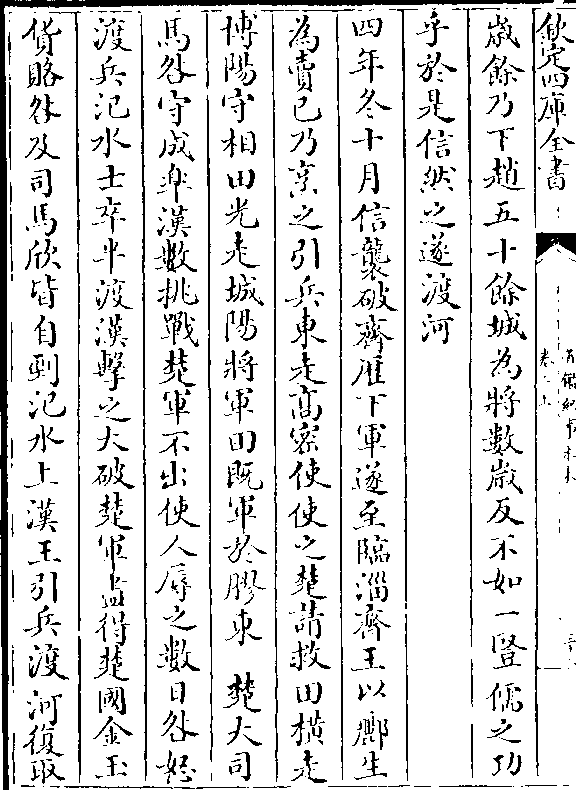 欽定四庫全書
歲餘乃下趙五十餘城為將數歲反不如一豎儒之功
乎於是信然之遂渡河
四年冬十月信襲破齊歴下軍遂至臨淄齊王以酈生
為賣已乃烹之引兵東走髙宻使使之楚請救田橫走
博陽守相田光走城陽將軍田既軍於膠東 楚大司
馬咎守成臯漢數挑戰楚軍不出使人辱之數日咎怒
渡兵汜水士卒半渡漢擊之大破楚軍盡得楚國金玉
貨賂咎及司馬欣皆自剄汜水上漢王引兵渡河復取